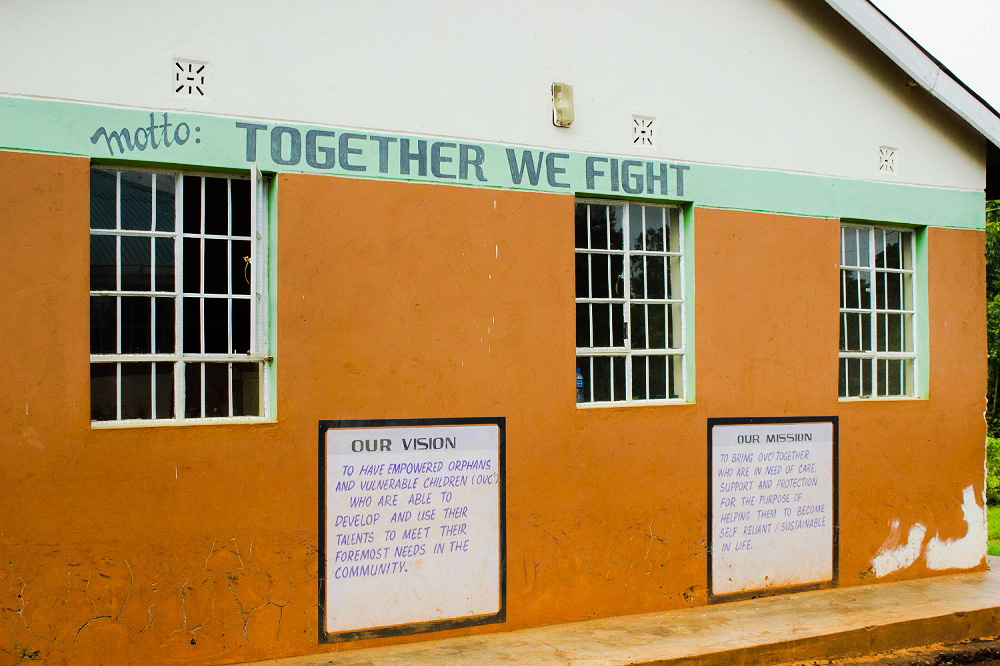 motto: TOGETHER WE FIGHT
OUR VISION
TO HAVE EMPOWERED ORPHANS
AND VULNERABLE CHILDREN (OVCs)
WHO ARE ABLE TO
DEVELOP AND USE THEIR
TALENTS TO MEET THEIR
FOREMOST NEEDS IN THE
COMMUNITY.
OUR MISSION
TO BRING OVCs TOGETHER
WHO ARE IN NEED OF CARE,
SUPPORT AND PROTECTION
FOR THE PURPOSE OF
HELPING THEM TO BECOME
SELF RELIANT/SUSTAINABLE
IN LIFE.